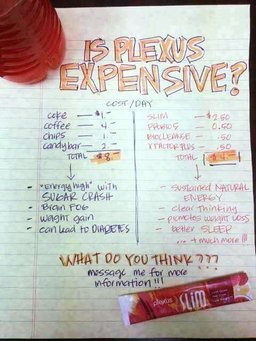 IS PLEXUS
EXPENSIVE?
COST/DAY
coke — $1 -
coffee — 4 -
chips — 1 -
candybar — 2 -
TOTAL $8
- "energy high" with
SUGAR CRASH
- Brain FOG
- weight gain
- can lead to DIABETES
SLIM — $2.50
PROBIO5 — 0.50
BIOCLEANSE — .50
XFACTOR PLUS — .50
TOTAL $4 -
- sustained NATURAL
ENERGY
- clear thinking
- promotes weight loss
- better SLEEP
... + much more!!!
WHAT DO YOU THINK???
message me for more
information!!!
plexus
slim